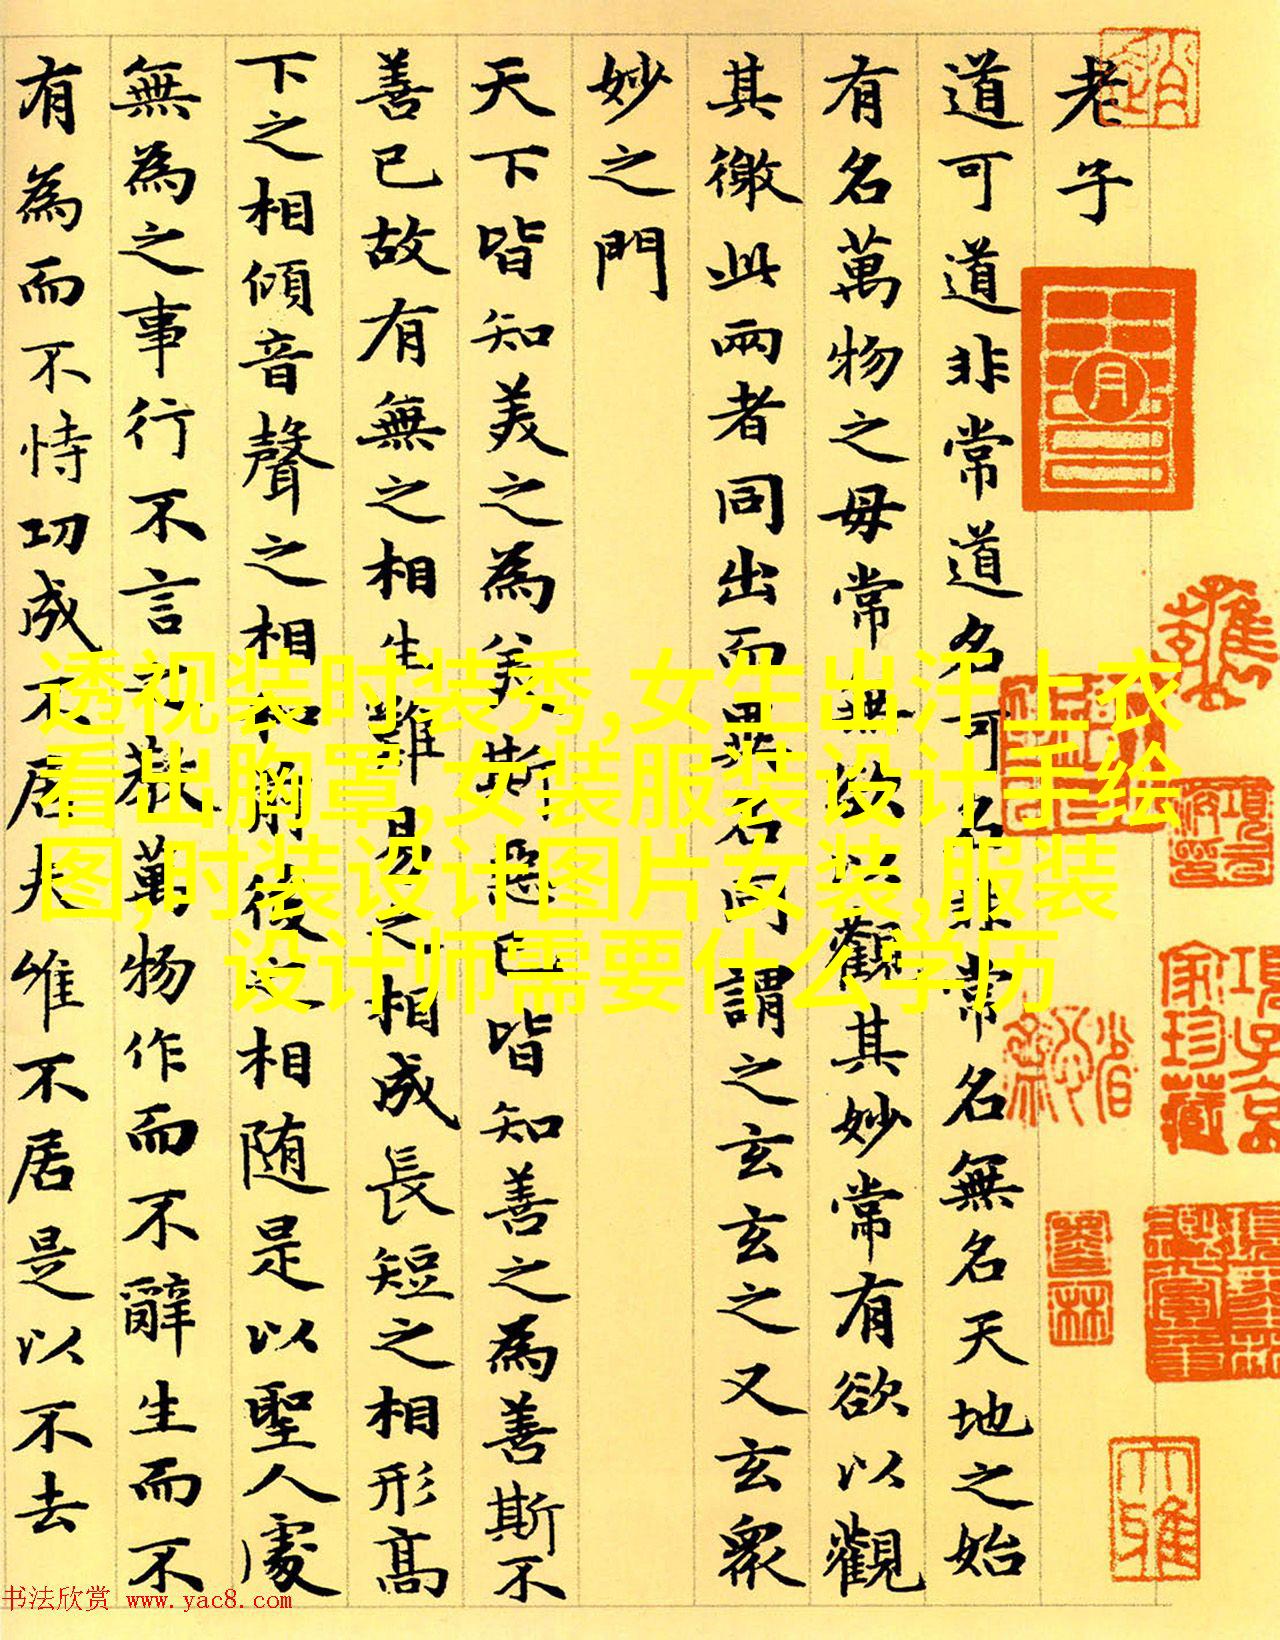 老子
道可道非常道名可名非常名無名天地之始
有名萬物之母常無欲以觀其妙常有欲以觀
其徼此兩者同出而異名同謂之玄玄之又玄衆
妙之門
天下皆知美之為美斯惡已皆知善之為善斯不
善已故有無之相生難易之相成長短之相形高
下之相傾音聲之相和前後之相隨是以聖人處
無為之事行不言之教萬物作而不辭生而不
有為而不恃功成不居夫唯不居是以不去
透视装时装秀,女生出汗上衣
看出胸罩,女装服装设计手绘
图,时装设计图片女装,服装
设计师需要什么学历
书法欣赏 www.yac8.com